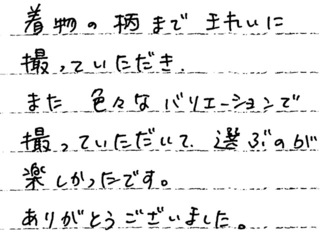 着物の柄まで キれいに
撮っていただき、
また 色々な バリエーションで
撮っていただいて、選ぶのが
楽しかったです。
ありがとうございました。